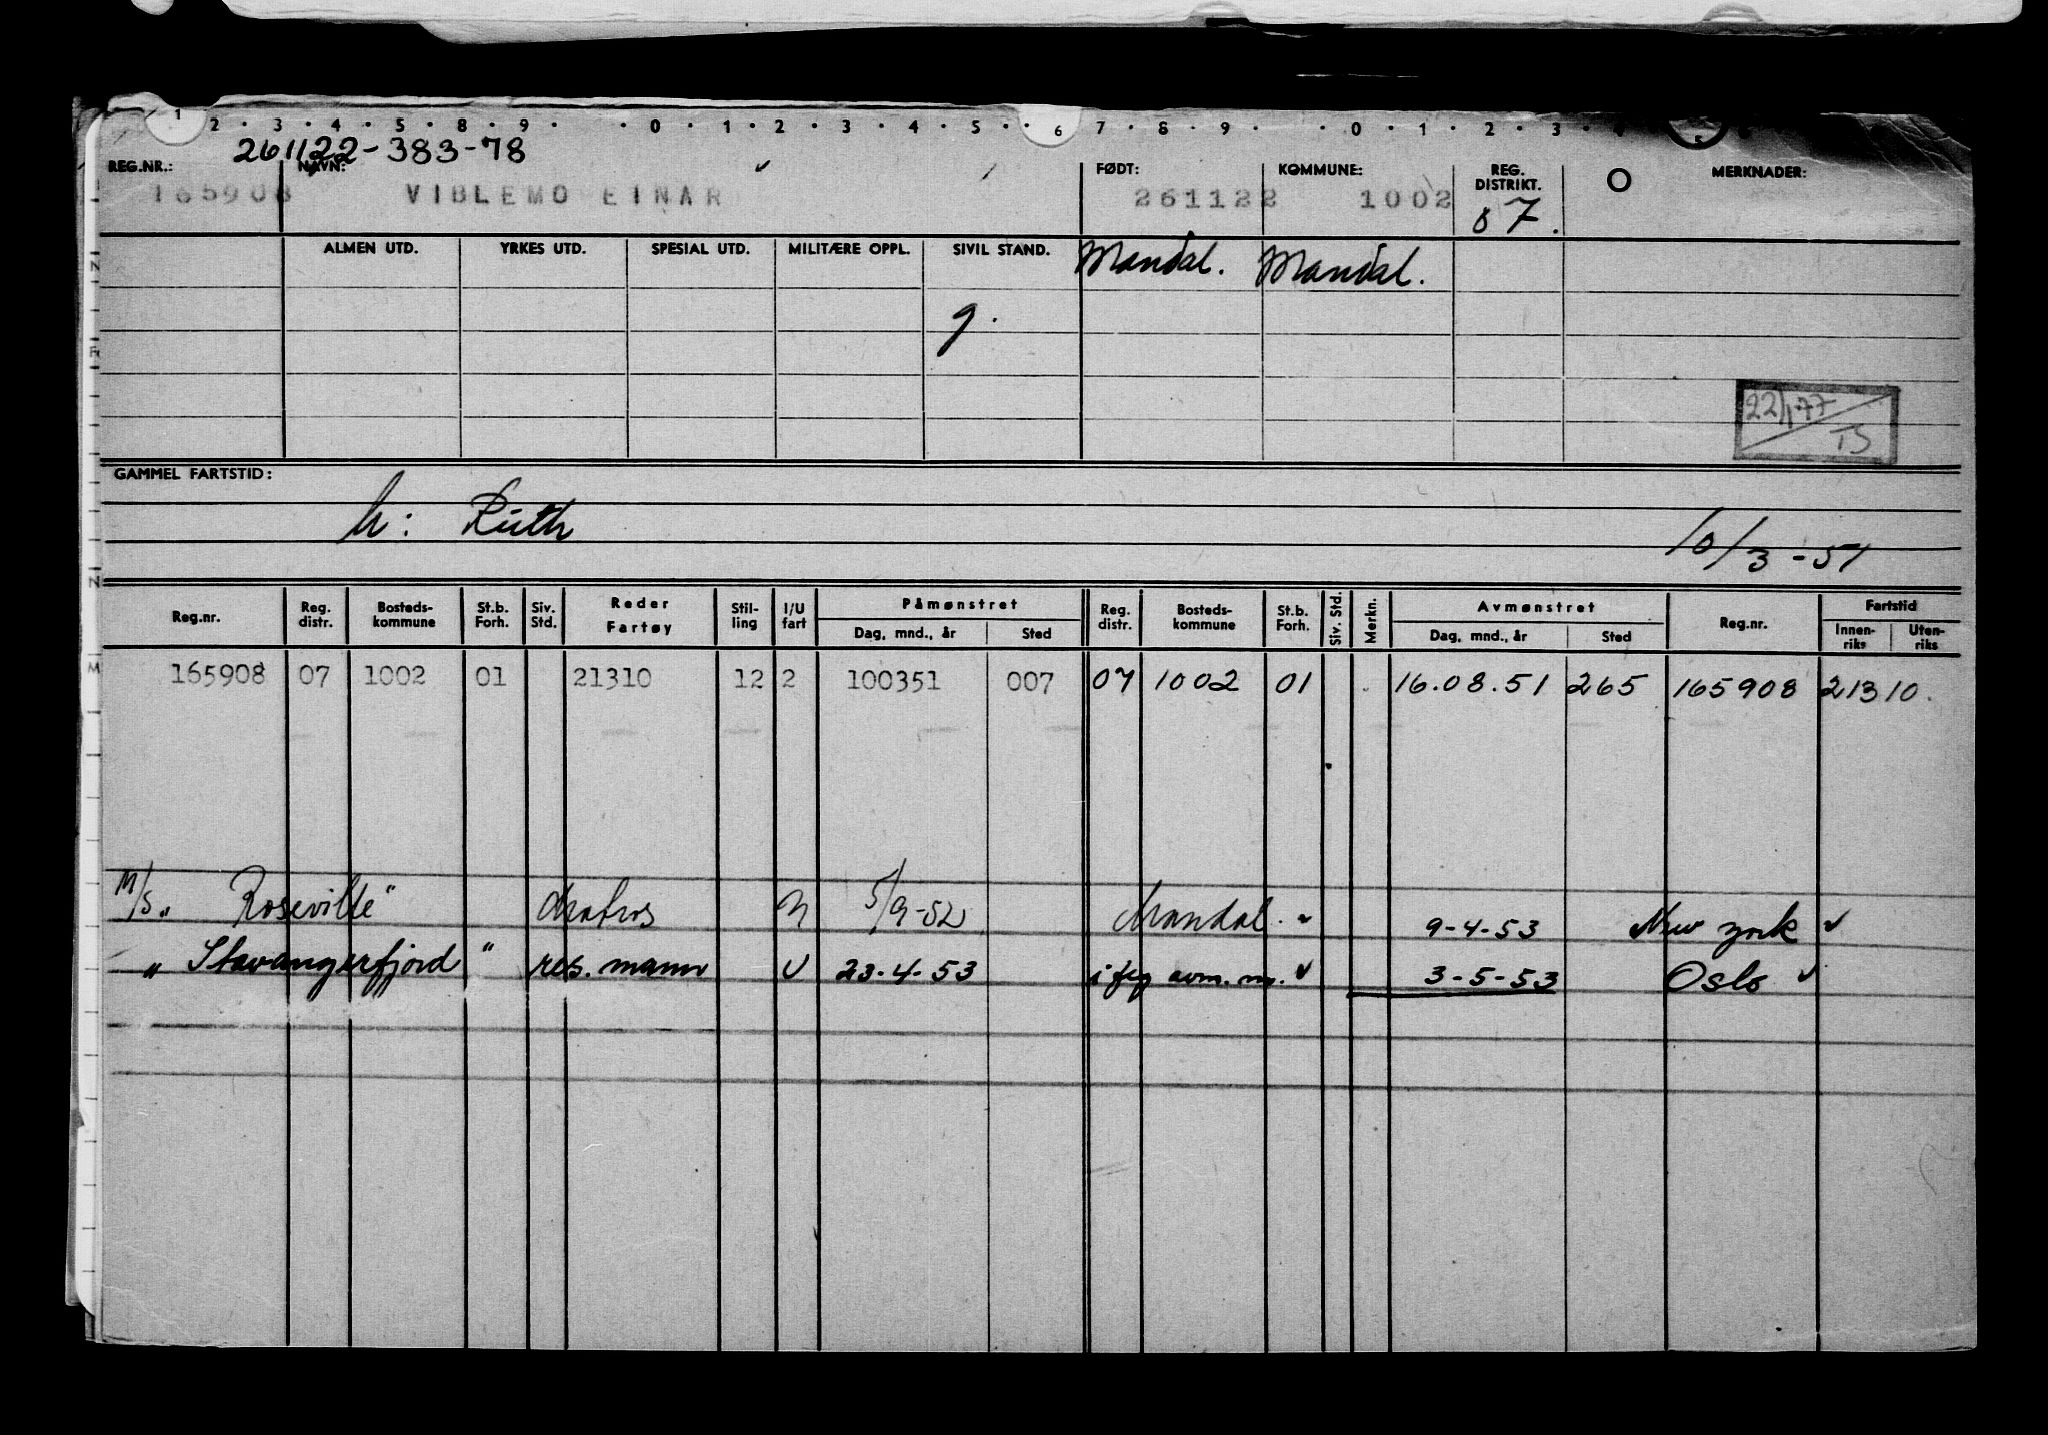 1 2 · 3 · 4 · 5 · 8 · 9 · · 0 · 1 · 2 · 3 · 4 · 5 · · 6 7 · 8 · 9 · · 0 · 1 · 2 · 3 · 4 5
261122-383-78
REG.NR.: NAVN: FØDT: KOMMUNE: REG. DISTRIKT. MERKNADER:
165908 VIBLEMO EINAR 261122 1002 07.
ALMEN UTD. YRKES UTD. SPESIAL UTD. MILITÆRE OPPL. SIVIL STAND. Mandal. Mandal.
g.
22/1-77
TS
GAMMEL FARTSTID:
h: Ruth 10/3-51
Reg.nr. Reg. distr. Bosteds-kommune St.b. Forh. Siv. Std. Reder Fartøy Stil-ling I/U fart Påmønstret Reg. distr. Bosteds-kommune St.b. Forh. Siv. Std. Merkn. Avmønstret Reg.nr. Fartstid
Dag, mnd., år Sted Dag, mnd., år Sted Innen-riks Uten-riks
165908 07 1002 01 21310 12 2 100351 007 07 1002 01 16.08.51 265 165908 21310.
M/S „Roseville" Matros 5/9-52 Mandal. 9-4-53 New York
„Stavangerfjord" res. mann U 23-4-53 i flg avm. m. 3-5-53 Oslo